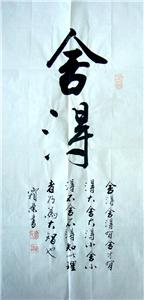 舍得
舍得舍得有舍才有
得大舍大得小舍小
得不舍不得知此理
者乃為大智也
書